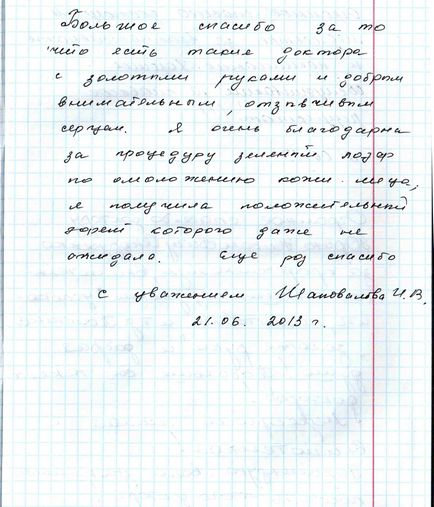 Большое спасибо за то
что есть такие доктора
с золотыми руками и добрым
внимательным, отзывчивым
сердцем. Я очень благодарна
за процедуру зеленый лазар
по омоложению кожи лица,
я получила положительный
эфект которого даже не
ожидала. Еще раз спасибо
с уважением Шаповалова И.В.
21.06. 2013 г.